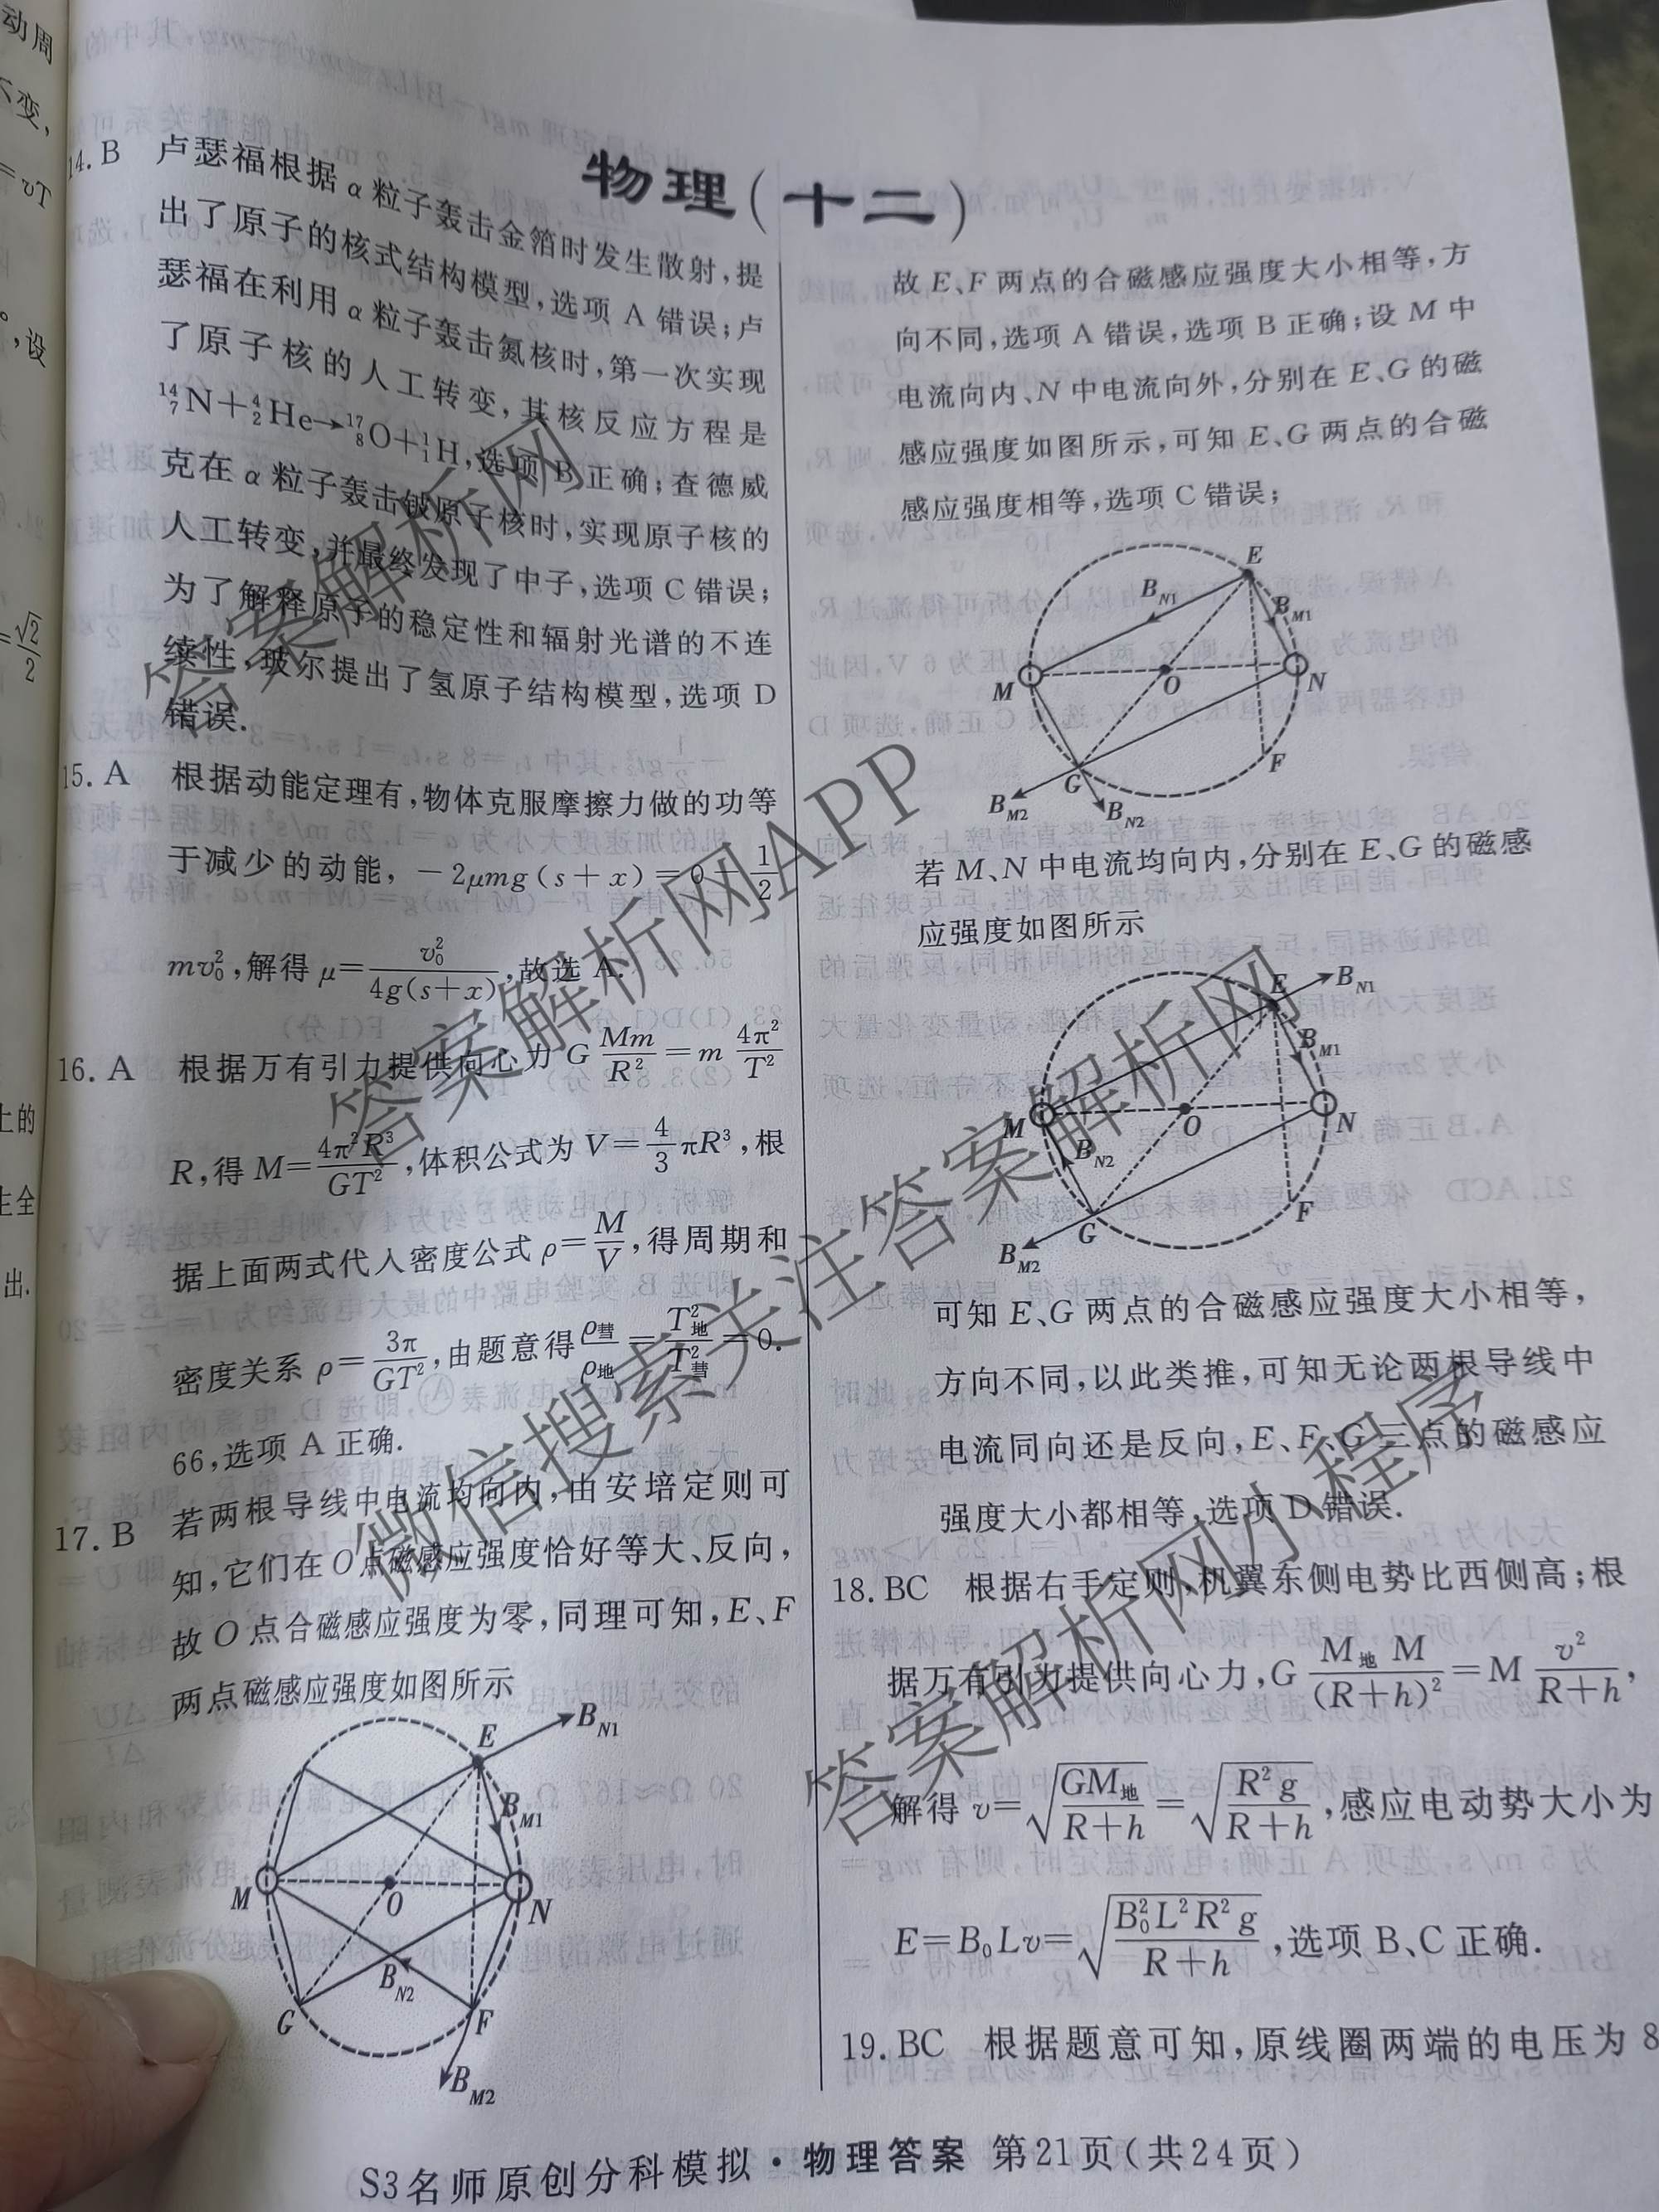 动周
不变,
=vT
,设
=√2/2
上的
生全
出.
物理(十二)
14. B 卢瑟福根据 α 粒子轰击金箔时发生散射,提
出了原子的核式结构模型,选项 A 错误;卢
瑟福在利用 α 粒子轰击氮核时,第一次实现
了原子核的人工转变,其核反应方程是
¹⁴₇N+⁴₂He→¹⁷₈O+¹₁H,选项 B 正确;查德威
克在 α 粒子轰击铍原子核时,实现原子核的
人工转变,并最终发现了中子,选项 C 错误;
为了解释原子的稳定性和辐射光谱的不连
续性,玻尔提出了氢原子结构模型,选项 D
错误.
15. A 根据动能定理有,物体克服摩擦力做的功等
于减少的动能, -2μmg(s+x)=0-1/2
mv₀²,解得 μ=v₀²/4g(s+x),故选 A.
16. A 根据万有引力提供向心力 G Mm/R²=m 4π²/T²
R,得 M=4π²R³/GT²,体积公式为 V=4/3 πR³,根
据上面两式代入密度公式 ρ=M/V,得周期和
密度关系 ρ=3π/GT²,由题意得 ρ彗/ρ地=T²地/T²彗=0.
66,选项 A 正确.
17. B 若两根导线中电流均向内,由安培定则可
知,它们在 O 点磁感应强度恰好等大、反向,
故 O 点合磁感应强度为零,同理可知,E、F
两点磁感应强度如图所示
E
B_N1
B_M1
M
O
N
B_N2
G
F
B_M2
故 E、F 两点的合磁感应强度大小相等,方
向不同,选项 A 错误,选项 B 正确;设 M 中
电流向内、N 中电流向外,分别在 E、G 的磁
感应强度如图所示,可知 E、G 两点的合磁
感应强度相等,选项 C 错误;
E
B_N1
B_M1
M
O
N
G
F
B_M2
B_N2
若 M、N 中电流均向内,分别在 E、G 的磁感
应强度如图所示
E
B_N1
B_M1
M
O
N
B_N2
G
F
B_M2
可知 E、G 两点的合磁感应强度大小相等,
方向不同,以此类推,可知无论两根导线中
电流同向还是反向,E、F、G 三点的磁感应
强度大小都相等,选项 D 错误.
18. BC 根据右手定则,机翼东侧电势比西侧高;根
据万有引力提供向心力,G M地M/(R+h)²=M v²/R+h,
解得 v=√(GM地/R+h)=√(R²g/R+h),感应电动势大小为
E=B₀Lv=√(B₀²L²R²g/R+h),选项 B、C 正确.
19. BC 根据题意可知,原线圈两端的电压为 8
S3名师原创分科模拟·物理答案 第21页(共24页)
答案解析网
答案解析网APP
微信搜索关注答案解析网
答案解析网小程序